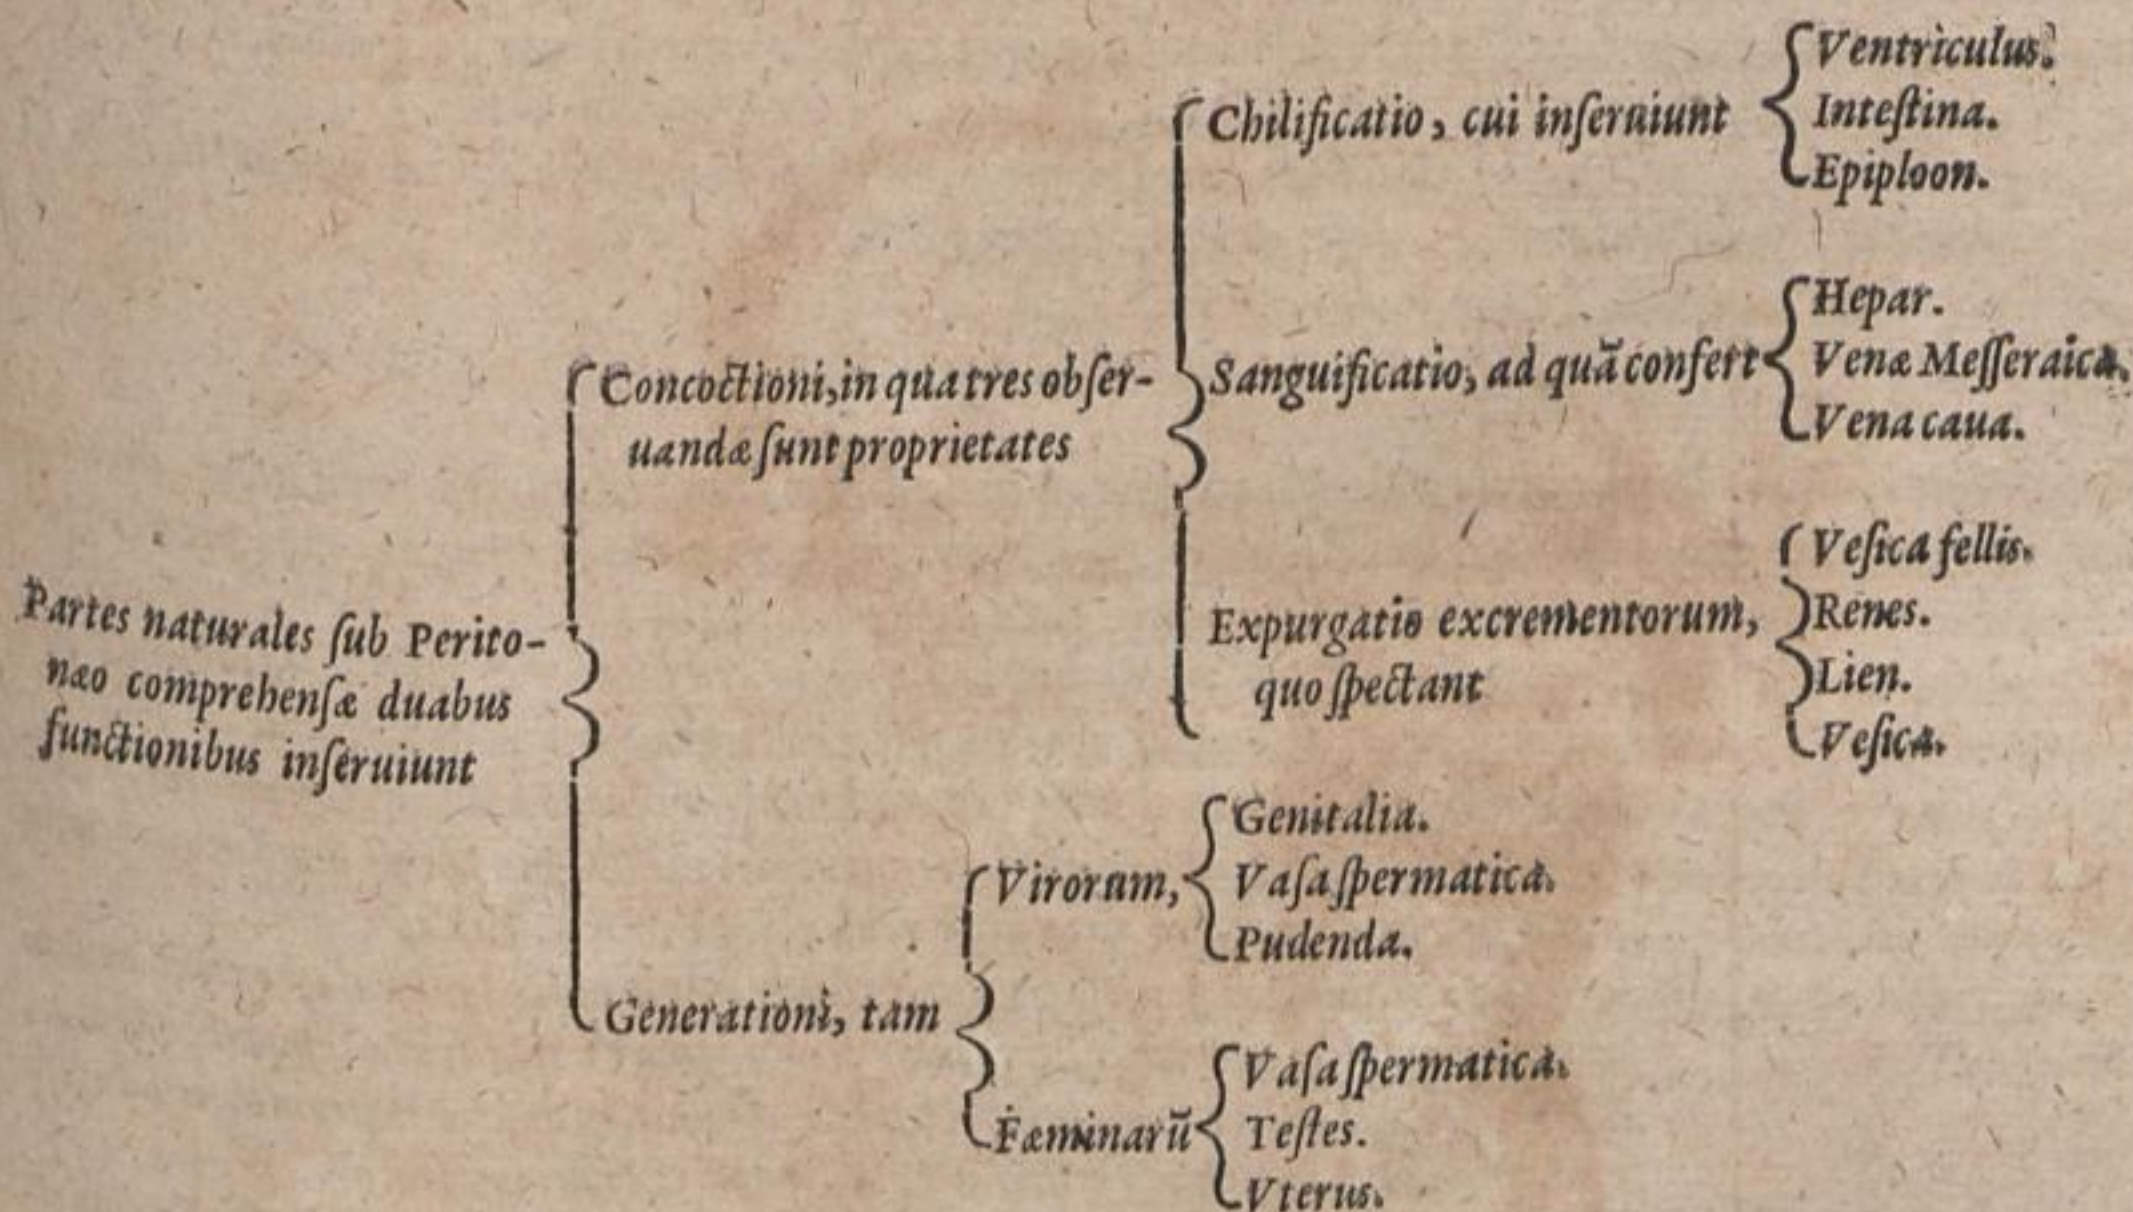 Partes naturales ſub Perito-
næo comprehenſæ duabus
functionibus inſeruiunt
Concoctioni, in qua tres obſer-
uandæ ſunt proprietates
Chilificatio, cui inſeruiunt
Ventriculus.
Inteſtina.
Epiploon.
Sanguificatio, ad quā confert
Hepar.
Venæ Meſſeraicæ.
Vena caua.
Expurgatio excrementorum,
quo ſpectant
Veſica fellis.
Renes.
Lien.
Veſica.
Generationi, tam
Virorum,
Genitalia.
Vaſa ſpermatica.
Pudenda.
Fæminarū
Vaſa ſpermatica.
Teſtes.
Vterus.